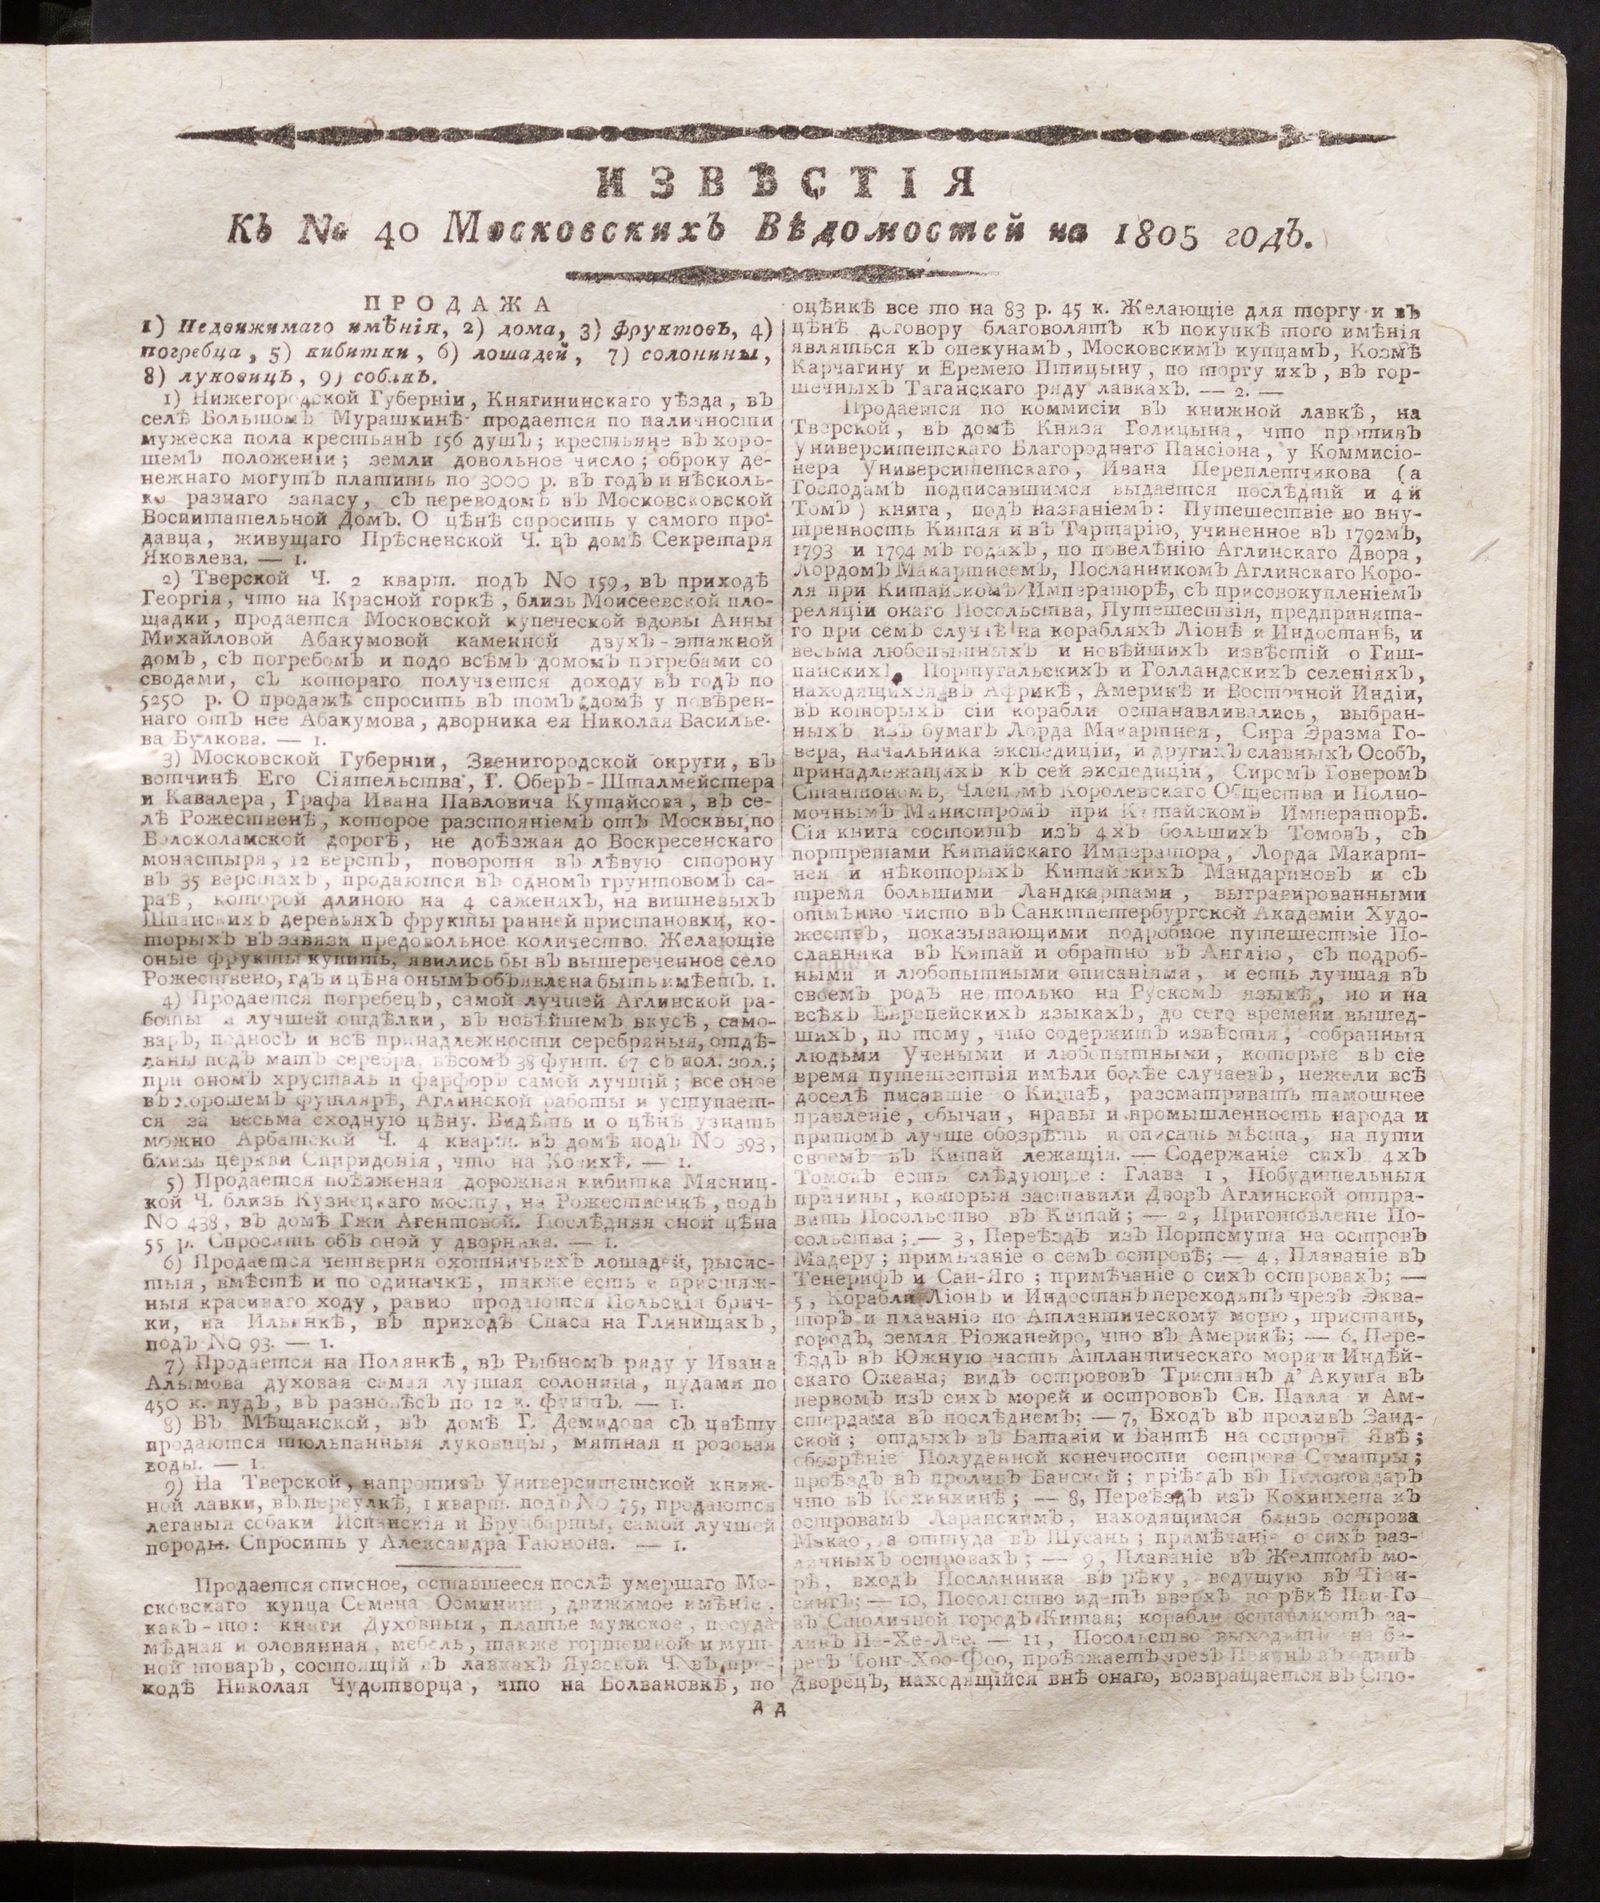 ИЗВѢСТІЯ
Къ No 40 Московскихъ Вѣдомостей на 1805 годъ.
ПРОДАЖА
1) Недвижимаго имѣнія, 2) дома, 3) фруктовъ, 4)
погребца, 5) кибитки, 6) лошадей, 7) солонины,
8) луковицъ, 9) собакъ.
1) Нижегородской Губерніи, Княгининскаго уѣзда, въ
селѣ Большомъ Мурашкинѣ продается по наличности
мужеска пола крестьянъ 156 душъ; крестьяне въ хоро-
шемъ положеніи; земли довольное число; оброку де-
нежнаго могутъ платить по 3000 р. въ годъ и нѣсколь-
ко разнаго запасу, съ переводомъ въ Московсковской
Воспитательной Домъ. О цѣнѣ спросить у самого про-
давца, живущаго Прѣсненской Ч. въ домѣ Секретаря
Яковлева. — 1.
2) Тверской Ч. 2 кварт. подъ No 159, въ приходѣ
Георгія, что на Красной горкѣ, близь Моисеевской пло-
щадки, продается Московской купеческой вдовы Анны
Михайловой Абакумовой каменной двухъ-этажной
домъ, съ погребомъ и подо всѣмъ домомъ погребами со
сводами, съ котораго получается доходу въ годъ по
5250 р. О продажѣ спросить въ томъ домѣ у повѣрен-
наго отъ нее Абакумова, дворника ея Николая Василье-
ва Булкова. — 1.
3) Московской Губерніи, Звенигородской округи, въ
вотчинѣ Его Сіятельства, Г. Оберъ-Шталмейстера
и Кавалера, Графа Ивана Павловича Кутайсова, въ се-
лѣ Рожественѣ, которое разстояніемъ отъ Москвы, по
Волоколамской дорогѣ, не доѣзжая до Воскресенскаго
монастыря, 12 верстъ, поворотя въ лѣвую сторону
въ 35 верстахъ, продаются въ одномъ грунтовомъ са-
раѣ, которой длиною на 4 саженяхъ, на вишневыхъ
Шпанскихъ деревьяхъ фрукты ранней пристановки, ко-
торыхъ въ завязи предовольное количество. Желающіе
оные фрукты купить, явились бы в вышереченное село
Рожествено, гдѣ и цѣна онымъ объявлена быть имѣетъ. 1.
4) Продается погребецъ, самой лучшей Аглинской ра-
боты и лучшей отдѣлки, въ новѣйшемъ вкусѣ, само-
варъ, подносъ и всѣ принадлежности серебряныя, отдѣ-
ланы подъ матъ серебра, вѣсомъ 38 фунт. 67 съ пол. зол.;
при ономъ хрусталь и фарфоръ самой лучшій; все оное
въ хорошемъ футлярѣ, Аглинской работы и уступает-
ся за весьма сходную цѣну. Видѣть и о цѣнѣ узнать
можно Арбатской Ч. 4 кварт. въ домѣ подъ No 393,
близь церкви Спиридонія, что на Козихѣ. — 1.
5) Продается поѣзженая дорожная кибитка Мясниц-
кой Ч. близь Кузнецкаго мосту, на Рожественкѣ, подъ
No 438, въ домѣ Гжи Агентовой. Послѣдняя оной цѣна
55 р. Спросить объ оной у дворника. — 1.
6) Продается четверня охотничьихъ лошадей, рысис-
тыя, вмѣстѣ и по одиначкѣ, также есть и пристяж-
ныя красиваго ходу, равно продаются Польскія брич-
ки, на Ильинкѣ, въ приходѣ Спаса на Глинищахъ,
подъ No 93. — 1.
7) Продается на Полянкѣ, въ Рыбномъ ряду у Ивана
Алымова духовая самая лучшая солонина, пудами по
450 к. пудъ, въ разновѣсъ по 12 к. фунтъ. — 1.
8) Въ Мѣщанской, въ домѣ Г. Демидова съ цвѣту
продаются тюльпанныя луковицы, мятная и розовая
воды. — 1.
9) На Тверской, напротивъ Университетской книж-
ной лавки, въ переулкѣ, 1 кварт. подъ No 75, продаются
легавыя собаки Испанскія и Брудбарты, самой лучшей
породы. Спросить у Александра Гаюнона. — 1.
Продается описное, оставшееся послѣ умершаго Мо-
сковскаго купца Семена Осминина, движимое имѣніе,
какъ-то: книги Духовныя, платье мужское, посуда
мѣдная и оловянная, мебель, также горшешной и муш-
ной товаръ, состоящій въ лавкахъ Яузской Ч. въ при-
ходѣ Николая Чудотворца, что на Болвановкѣ, по
оцѣнкѣ все то на 83 р. 45 к. Желающіе для торгу и въ
цѣнѣ договору благоволятъ къ покупкѣ того имѣнія
являться къ опекунамъ, Московскимъ купцамъ, Козмѣ
Карчагину и Еремею Птицыну, по торгу ихъ, въ гор-
шечныхъ Таганскаго ряду лавкахъ. — 2. —
Продается по коммисіи въ книжной лавкѣ, на
Тверской, въ домѣ Князя Голицына, что противъ
Университетскаго Благороднаго Пансіона, у Коммисіо-
нера Университетскаго, Ивана Переплетчикова (а
Господамъ подписавшимся выдается послѣдній и 4й
Томъ) книга, подъ названіемъ: Путешествіе во вну-
тренность Китая и въ Тартарію, учиненное въ 1792мъ,
1793 и 1794 мъ годахъ, по повелѣнію Аглинскаго Двора,
Лордомъ Макартнеемъ, Посланникомъ Аглинскаго Коро-
ля при Китайскомъ Императорѣ, съ присовокупленіемъ
реляціи онаго Посольства, Путешествія, предпринята-
го при семъ случаѣ на корабляхъ Ліонѣ и Индостанѣ, и
весьма любопытныхъ и новѣйшихъ извѣстій о Гиш-
панскихъ, Португальскихъ и Голландскихъ селеніяхъ,
находящихся въ Африкѣ, Америкѣ и Восточной Индіи,
въ которыхъ сіи корабли останавливались, выбран-
ныхъ изъ бумагъ Лорда Макартнея, Сира Эразма Го-
вера, начальника экспедиціи, и другихъ славныхъ Особъ,
принадлежащихъ къ сей экспедиціи, Сиромъ Говеромъ
Стантономъ, Членомъ Королевскаго Общества и Полно-
мочнымъ Министромъ при Китайскомъ Императорѣ.
Сія книга состоитъ изъ 4хъ большихъ Томовъ, съ
портретами Китайскаго Императора, Лорда Макарт-
нея и нѣкоторыхъ Китайскихъ Мандариновъ и съ
тремя большими Ландкартами, выгравированными
отмѣнно чисто въ Санктпетербургской Академіи Худо-
жествъ, показывающими подробное путешествіе По-
сланника въ Китай и обратно въ Англію, съ подроб-
ными и любопытными описаніями, и есть лучшая въ
своемъ родѣ не только на Рускомъ языкѣ, но и на
всѣхъ Европейскихъ языкахъ, до сего времени вышед-
шихъ, по тому, что содержитъ извѣстія, собранныя
людьми Учеными и любопытными, которые въ сіе
время путешествія имѣли болѣе случаевъ, нежели всѣ
доселѣ писавшіе о Китаѣ, разсматривать тамошнее
правленіе, обычаи, нравы и промышленность народа и
притомъ лучше обозрѣть и описать мѣста, на пути
своемъ въ Китай лежащія. — Содержаніе сихъ 4хъ
Томовъ есть слѣдующее: Глава 1, Побудительныя
причины, которыя заставили Дворъ Аглинской отпра-
вить Посольство въ Китай; — 2, Приготовленіе По-
сольства; — 3, Переѣздъ изъ Портсмута на островъ
Мадеру; примѣчаніе о семъ островѣ; — 4, Плаваніе въ
Тенерифъ и Сан-Яго; примѣчаніе о сихъ островахъ; —
5, Корабли Ліонъ и Индостанъ переходятъ чрезъ Эква-
торъ и плаваніе по Атлантическому морю, пристань,
городъ, земля Ріожанейро, что въ Америкѣ; — 6, Пере-
ѣздъ въ Южную часть Атлантическаго моря и Индѣй-
скаго Океана; видъ острововъ Тристанъ д'Акунга въ
первомъ изъ сихъ морей и острововъ Св. Павла и Ам-
стердама въ послѣднемъ; — 7, Входъ въ проливъ Зинд-
ской; отдыхъ въ Батавіи и Бантѣ на островѣ Явѣ;
обозрѣніе Полуденной конечности острова Суматры;
проѣздъ въ проливъ Банской; пріѣздъ въ Пулокондаръ
что въ Кохинхинѣ; — 8, Переѣздъ изъ Кохинхена къ
островамъ Ларанскимъ, находящимся близь острова
Макао, а оттуда въ Шусань; примѣчаніе о сихъ раз-
личныхъ островахъ; — 9, Плаваніе въ Желтомъ мо-
рѣ, входъ Посланника въ рѣку, ведущую въ Тіен-
сингъ; — 10, Посольство идетъ вверхъ по рѣкѣ Пеи-Го
въ Столичной городъ Китая; корабли оставляютъ за-
ливъ Пе-Хе-Лее. — 11, Посольство выходитъ на бе-
регъ Тонг-Хоо-Фоо, проѣзжаетъ чрезъ Пекинъ въ одинъ
Дворецъ, находящійся внѣ онаго, возвращается въ Сто-
Д д